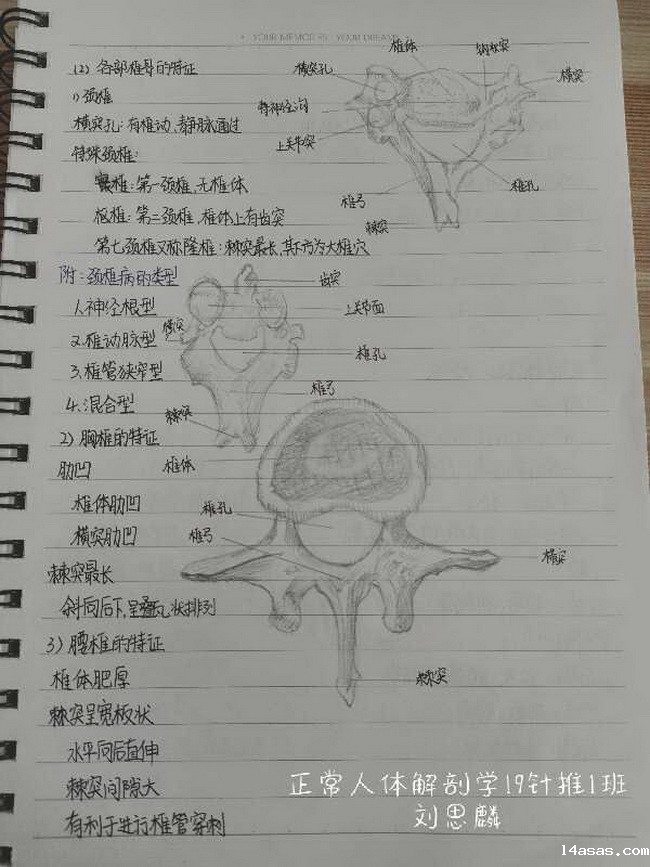 YOUR MEMORIES YOUR DREAM
(2) 各部椎骨的特征
1) 颈椎
横突孔:有椎动、静脉通过
特殊颈椎:
寰椎:第一颈椎,无椎体
枢椎:第二颈椎,椎体上有齿突
第七颈椎又称隆椎:棘突最长,其下方为大椎穴
椎体
钩状突
横突孔
横突
上关节突
椎孔
椎弓
棘突
附:颈椎病的类型
1.神经根型
2.椎动脉型
3.椎管狭窄型
4.混合型
齿突
上关节面
横突
椎孔
椎弓
棘突
2) 胸椎的特征
肋凹
椎体肋凹
横突肋凹
棘突最长
斜向后下,呈叠瓦状排列
椎体
椎孔
椎弓
横突
棘突
3) 腰椎的特征
椎体肥厚
棘突呈宽板状
水平向后直伸
棘突间隙大
有利于进行椎管穿刺
正常人体解剖学19针推1班
刘思麟
14asas.com